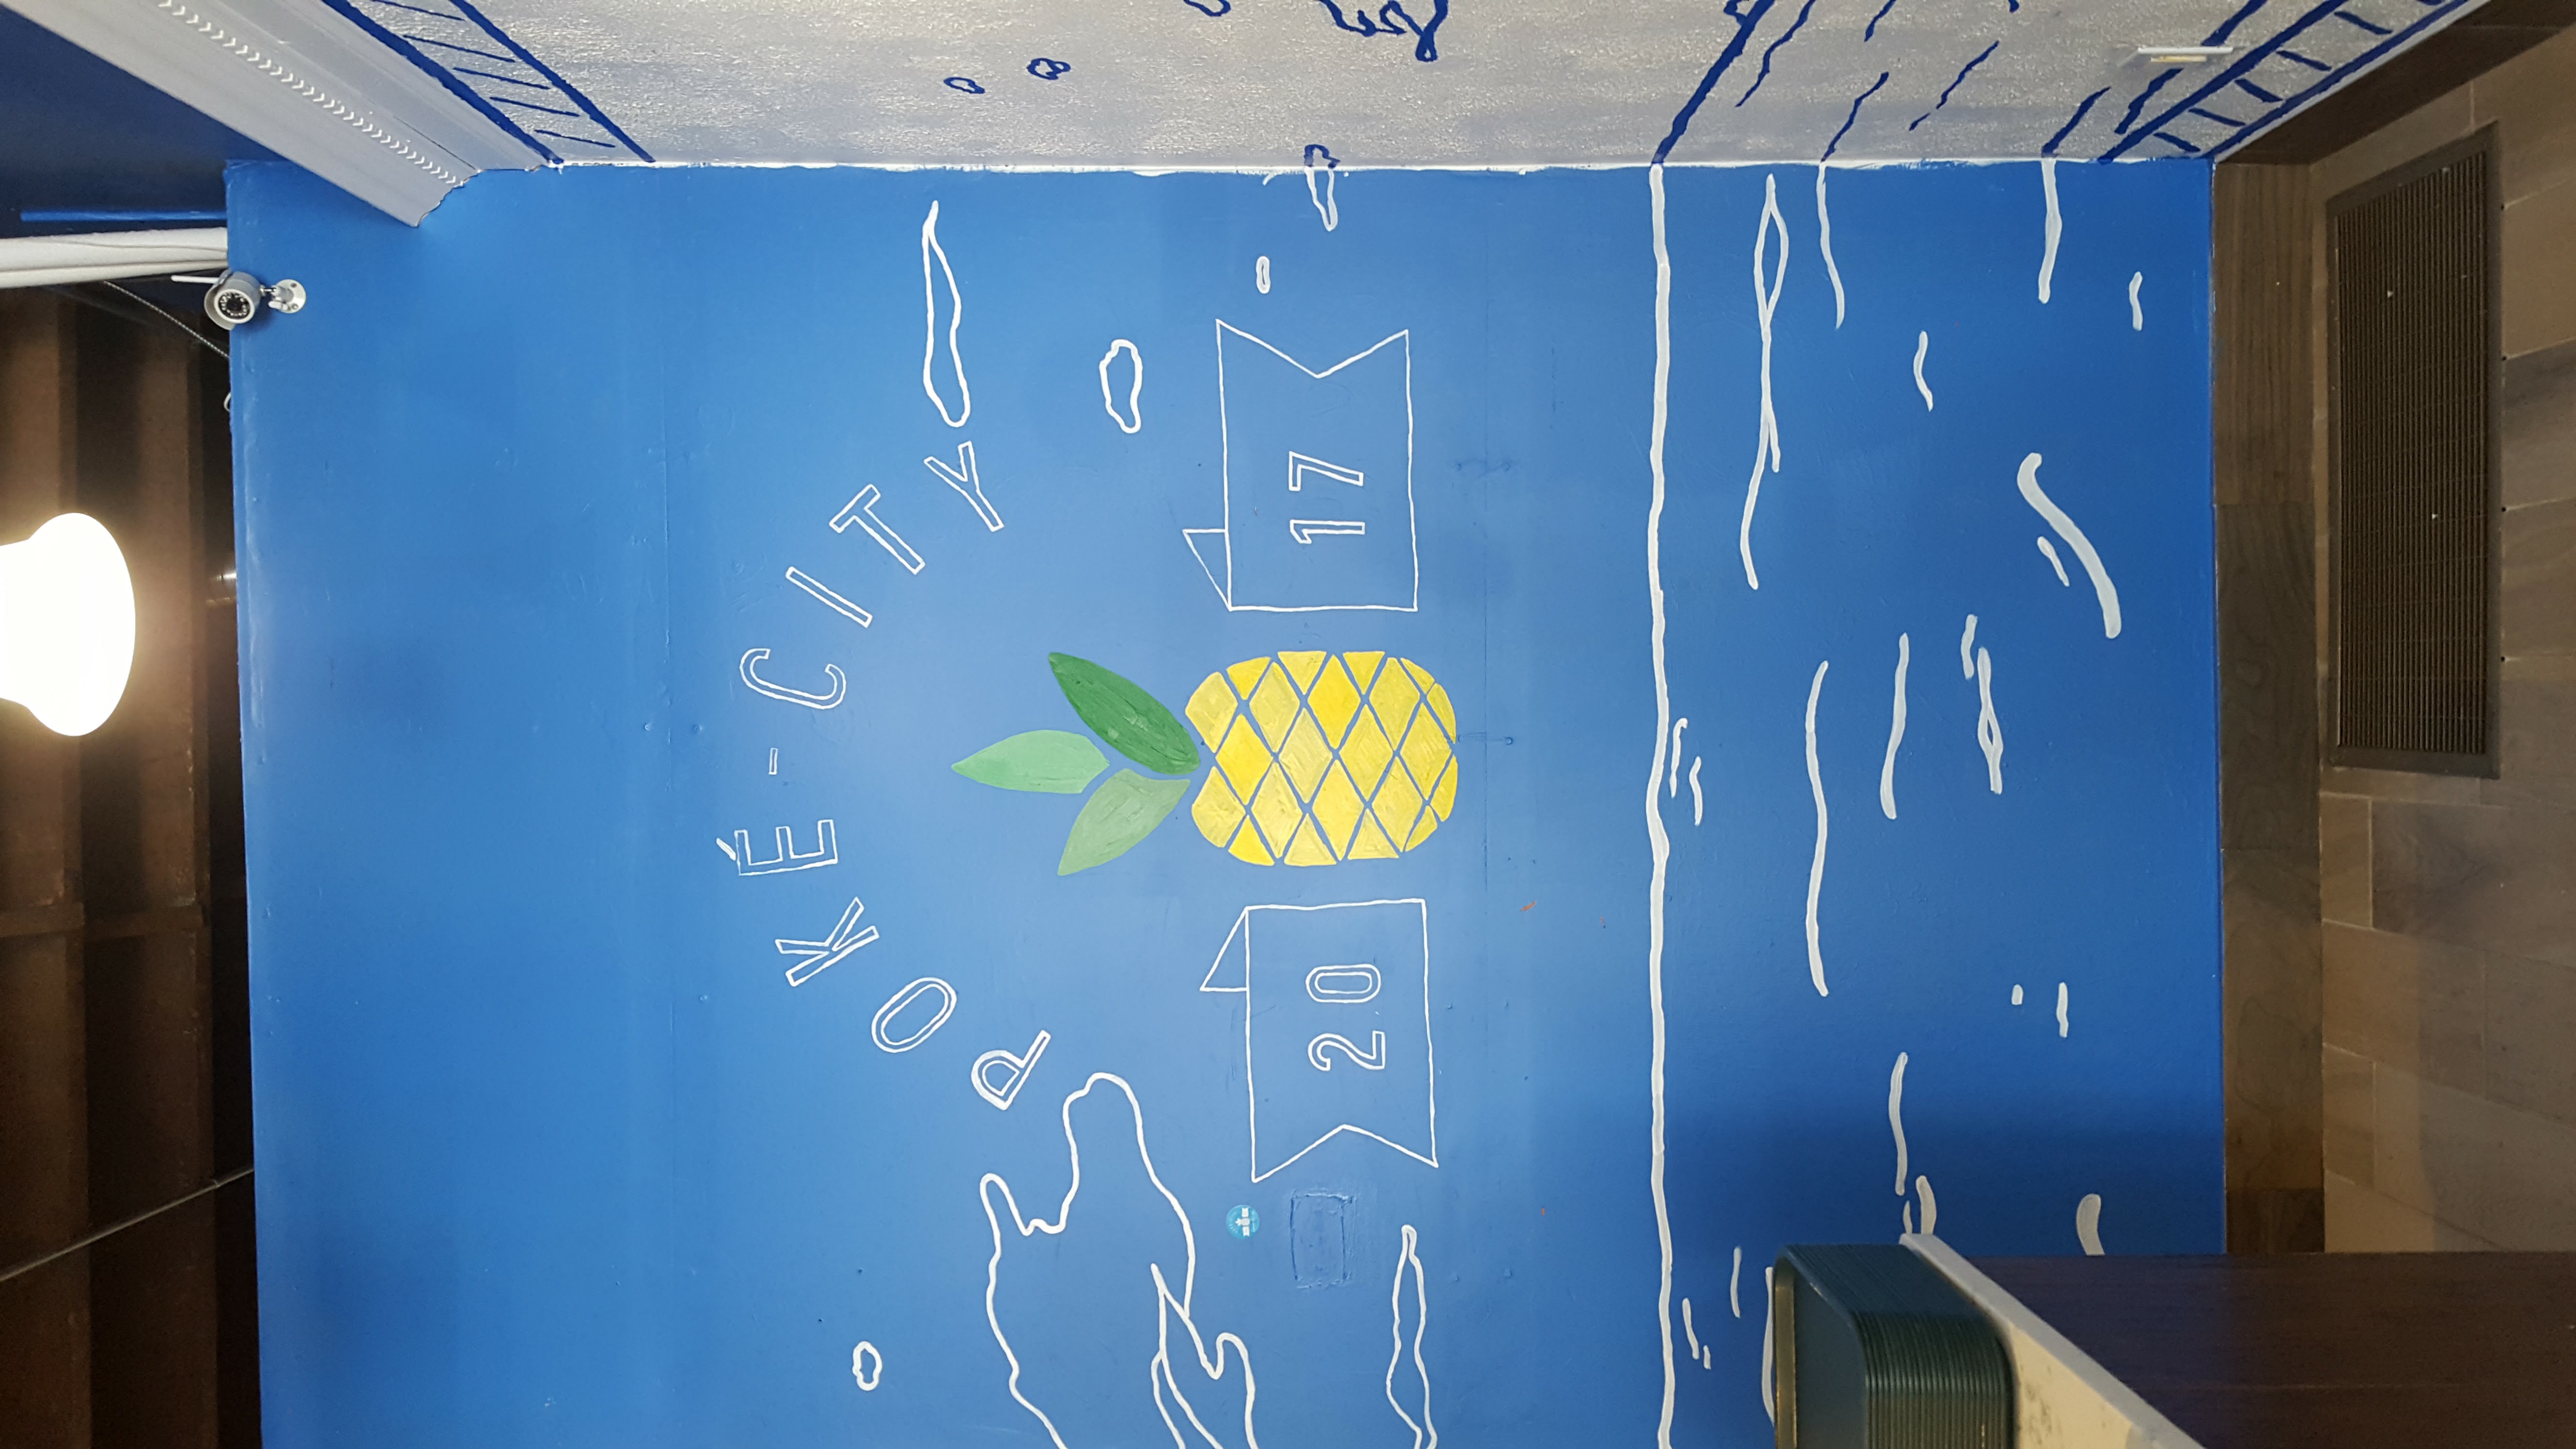 POKÉ-CITY
20 17